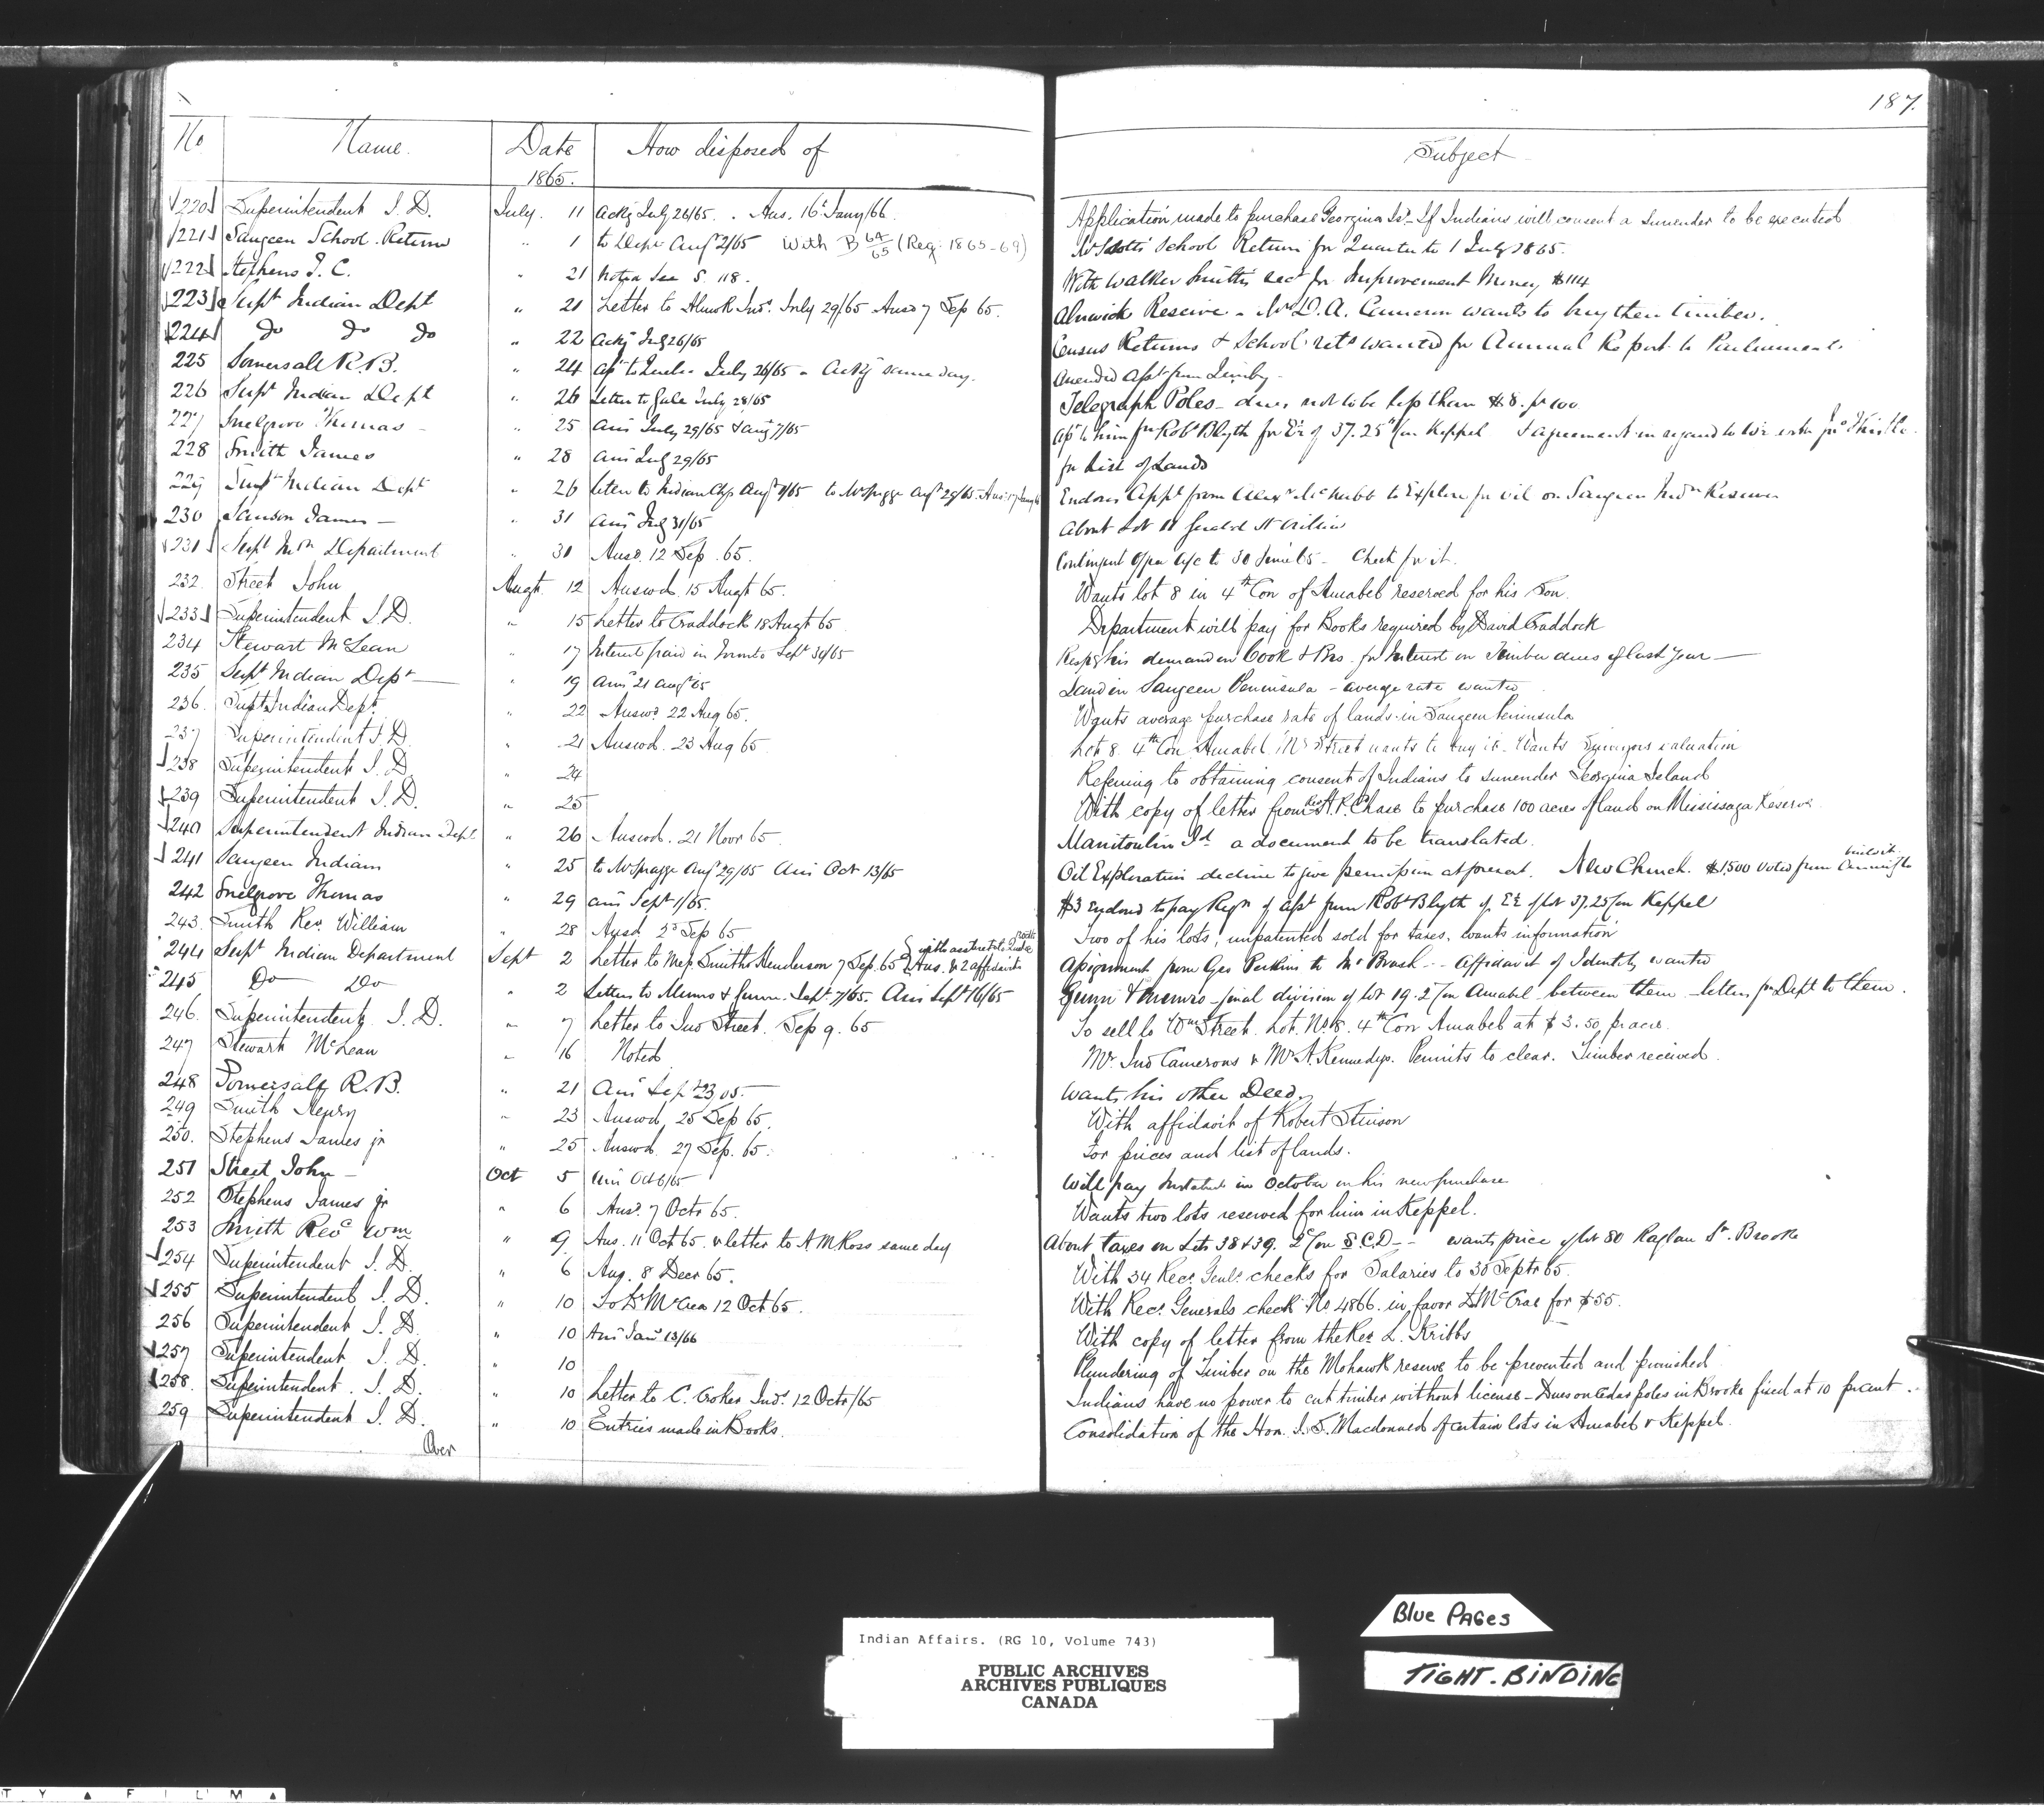 187.
No Name. Date How disposed of Subject
1865.
220 Superintendent I. D. July. 11 Ackg July 26/65. Ans. 16 Jany 66. Application made to purchase Georgina Isd - If Indians will consent a surrender to be executed
221 Saugeen School Return " 1 to Dept Augt 2/65 With B 64/65 (Reg: 1865-69) School Return for Quarter to 1 July 1865.
222 Stephens J. C. " 21 Noted See S. 118. With Walker Smith's rect for Improvement Money $114
223 Supt Indian Dept " 21 Letter to Alnwick Inds. July 29/65 Ansd 7 Sep 65. Alnwick Reserve - Mr D. A. Cameron wants to buy then timber.
224 Do Do Do " 22 Ackg July 26/65 Census Returns & School rets wanted for Annual Report to Parliament.
225 Somersall R. B. " 24 July 26/65 - Ackg same day. Amended Asst from
226 Supt Indian Dept " 26 Letter to Gale July 28/65 Telegraph Poles - dues not to be less than $8. pr 100
227 Snelgrove Thomas - " 25 Ans July 29/65 & Aug 7/65 to him fr Robt Blyth for E½ of 37. 25 Con Keppel & agreement in regard to
228 Smith James " 28 Ans July 29/65 for List of Lands
229 Supt Indian Dept " 26 Letter to Indian Augt 1/65 to Mr Spragge Augt 29/65 - Ans: Endors Appt from Alexr McNabb to Explore for oil on Saugeen Indn Reserve
230 Sanson James - " 31 Ans July 31/65 About Lot 11
231 Supt Indn Department " 31 Ansd. 12 Sep. 65. Contingent a/c to 30 June 65 - Check for it.
232. Street John Augt 12 Answd. 15 Augt 65. Wants lot 8 in 4th Con of Amabel reserved for his Son.
233 Superintendent I. D. " 15 Letter to Craddock 18 Augt 65 Department will pay for Books required by David Craddock
234 Stewart McLean " 17 Interest paid in Toronto Sept 30/65 Respg his demand on Cook & Bros. for Interest on Timber dues of last year -
235 Supt Indian Dept - " 19 Ans 21 Aug 65 Land in Saugeen Peninsula - average rate wanted
236. Supt Indian Dept. " 22 Answd. 22 Aug 65. Wants average purchase rate of lands in Saugeen Peninsula
237 Superintendent I. D. " 21 Answd. 23 Aug 65 Lot 8. 4th Con Amabel. Mr Street wants to buy it. Wants Surveyors valuation
238 Superintendent I. D. " 24 Refering to obtaining consent of Indians to surrender Georgina Island
239 Superintendent I. D. " 25 With copy of letter from Rev H. P. Chase to purchase 100 acres of land on Mississaga Reserve
240 Superintendent Indian Dept " 26 Answd. 21 Novr 65. Manitoulin Id a document to be translated.
241 Saugeen Indians " 25 to Mr Spragge Aug 29/65 Ans Oct 13/65 Oil Exploration decline to give permission at present. New Church. $1,500 voted from
242 Snelgrove Thomas " 29 Ans Sept 1/65. $3 Enclosed to pay Regn of asst from Robt Blyth of E½ of Lot 37.25 Con Keppel
243. Smith Rev. William " 28 Ansd. 2d Sep 65 Two of his lots, unpatented sold for taxes. wants information
244 Supt Indian Department Sept 2 Letter to Mess Smith & Henderson 7 Sep. 65 Ans. & 2 affidavits Assignment from Geo Perkins to Mr Brash - - Affidavit of Identity wanted
245 Do Do " 2 Letters to Munro & Gunn. Sept 7/65. Ans Sept 16/65 Gunn & Munro - final division of Lot 19. 2 Con Amabel between them - letters fr Dept to them.
246. Superintendent I. D. " 7 Letter to Jno Street. Sep 9. 65 To sell to Wm Street. Lot. No. 8. 4th Con Amabel at $3.50 pr acre.
247 Stewart McLean " 16 Noted Mr. Jno Camerons & Mr A. Kennedys. Permits to clear. Timber received
248 Somersall R. B. " 21 Ans Sep 23/65. Wants his other Deed.
249 Smith Henry " 23 Answd, 25 Sep 65. With affidavit of Robert Stinson
250. Stephens James jr " 25 Answd. 27 Sep. 65. For prices and list of lands.
251 Street John - Oct 5 Ans Oct 6/65 Will pay Instalmt in October on his new purchase
252 Stephens James jr " 6 Ansd. 7 Octr 65. Wants two lots reserved for him in Keppel.
253 Smith Revd Wm " 9 Ans. 11 Oct 65. & letter to A M Ross same day About taxes on Lots 38 & 39. 2 Con S. C. D - - wants price of lot 80 Raglan St. Brooke
254 Superintendent I. D. " 6 Aug. 8 Decr 65. With 34 Recr. Genls. checks for Salaries to 30 Septr 65.
255 Superintendent I. D. " 10 To Dr McCrea 12 Oct 65. With Recr. Generals check No. 4866. in favor Dr McCrae for $55.
256 Superintendent I. D. " 10 Ans Jany 13/66 With copy of letter from the Rev. L. Kribbs
257 Superintendent I. D. " 10 Plundering of Timber on the Mohawk reserve to be prevented and punished
258. Superintendent. I. D. " 10 Letter to C. Croker Inds. 12 Octr/65 Indians have no power to cut timber without license - Dues on Cedar poles in Brooke fixed at 10 pr cent.
259 Superintendent I. D. " 10 Entries made in Books. Consolidation of the Hon. J. S. Macdonned of certain lots in Amabel & Keppel.
Over
Blue PAGes
TIGHT.BINDING
Indian Affairs. (RG 10, Volume 743)
PUBLIC ARCHIVES
ARCHIVES PUBLIQUES
CANADA
T Y ▲ F I L M ▲